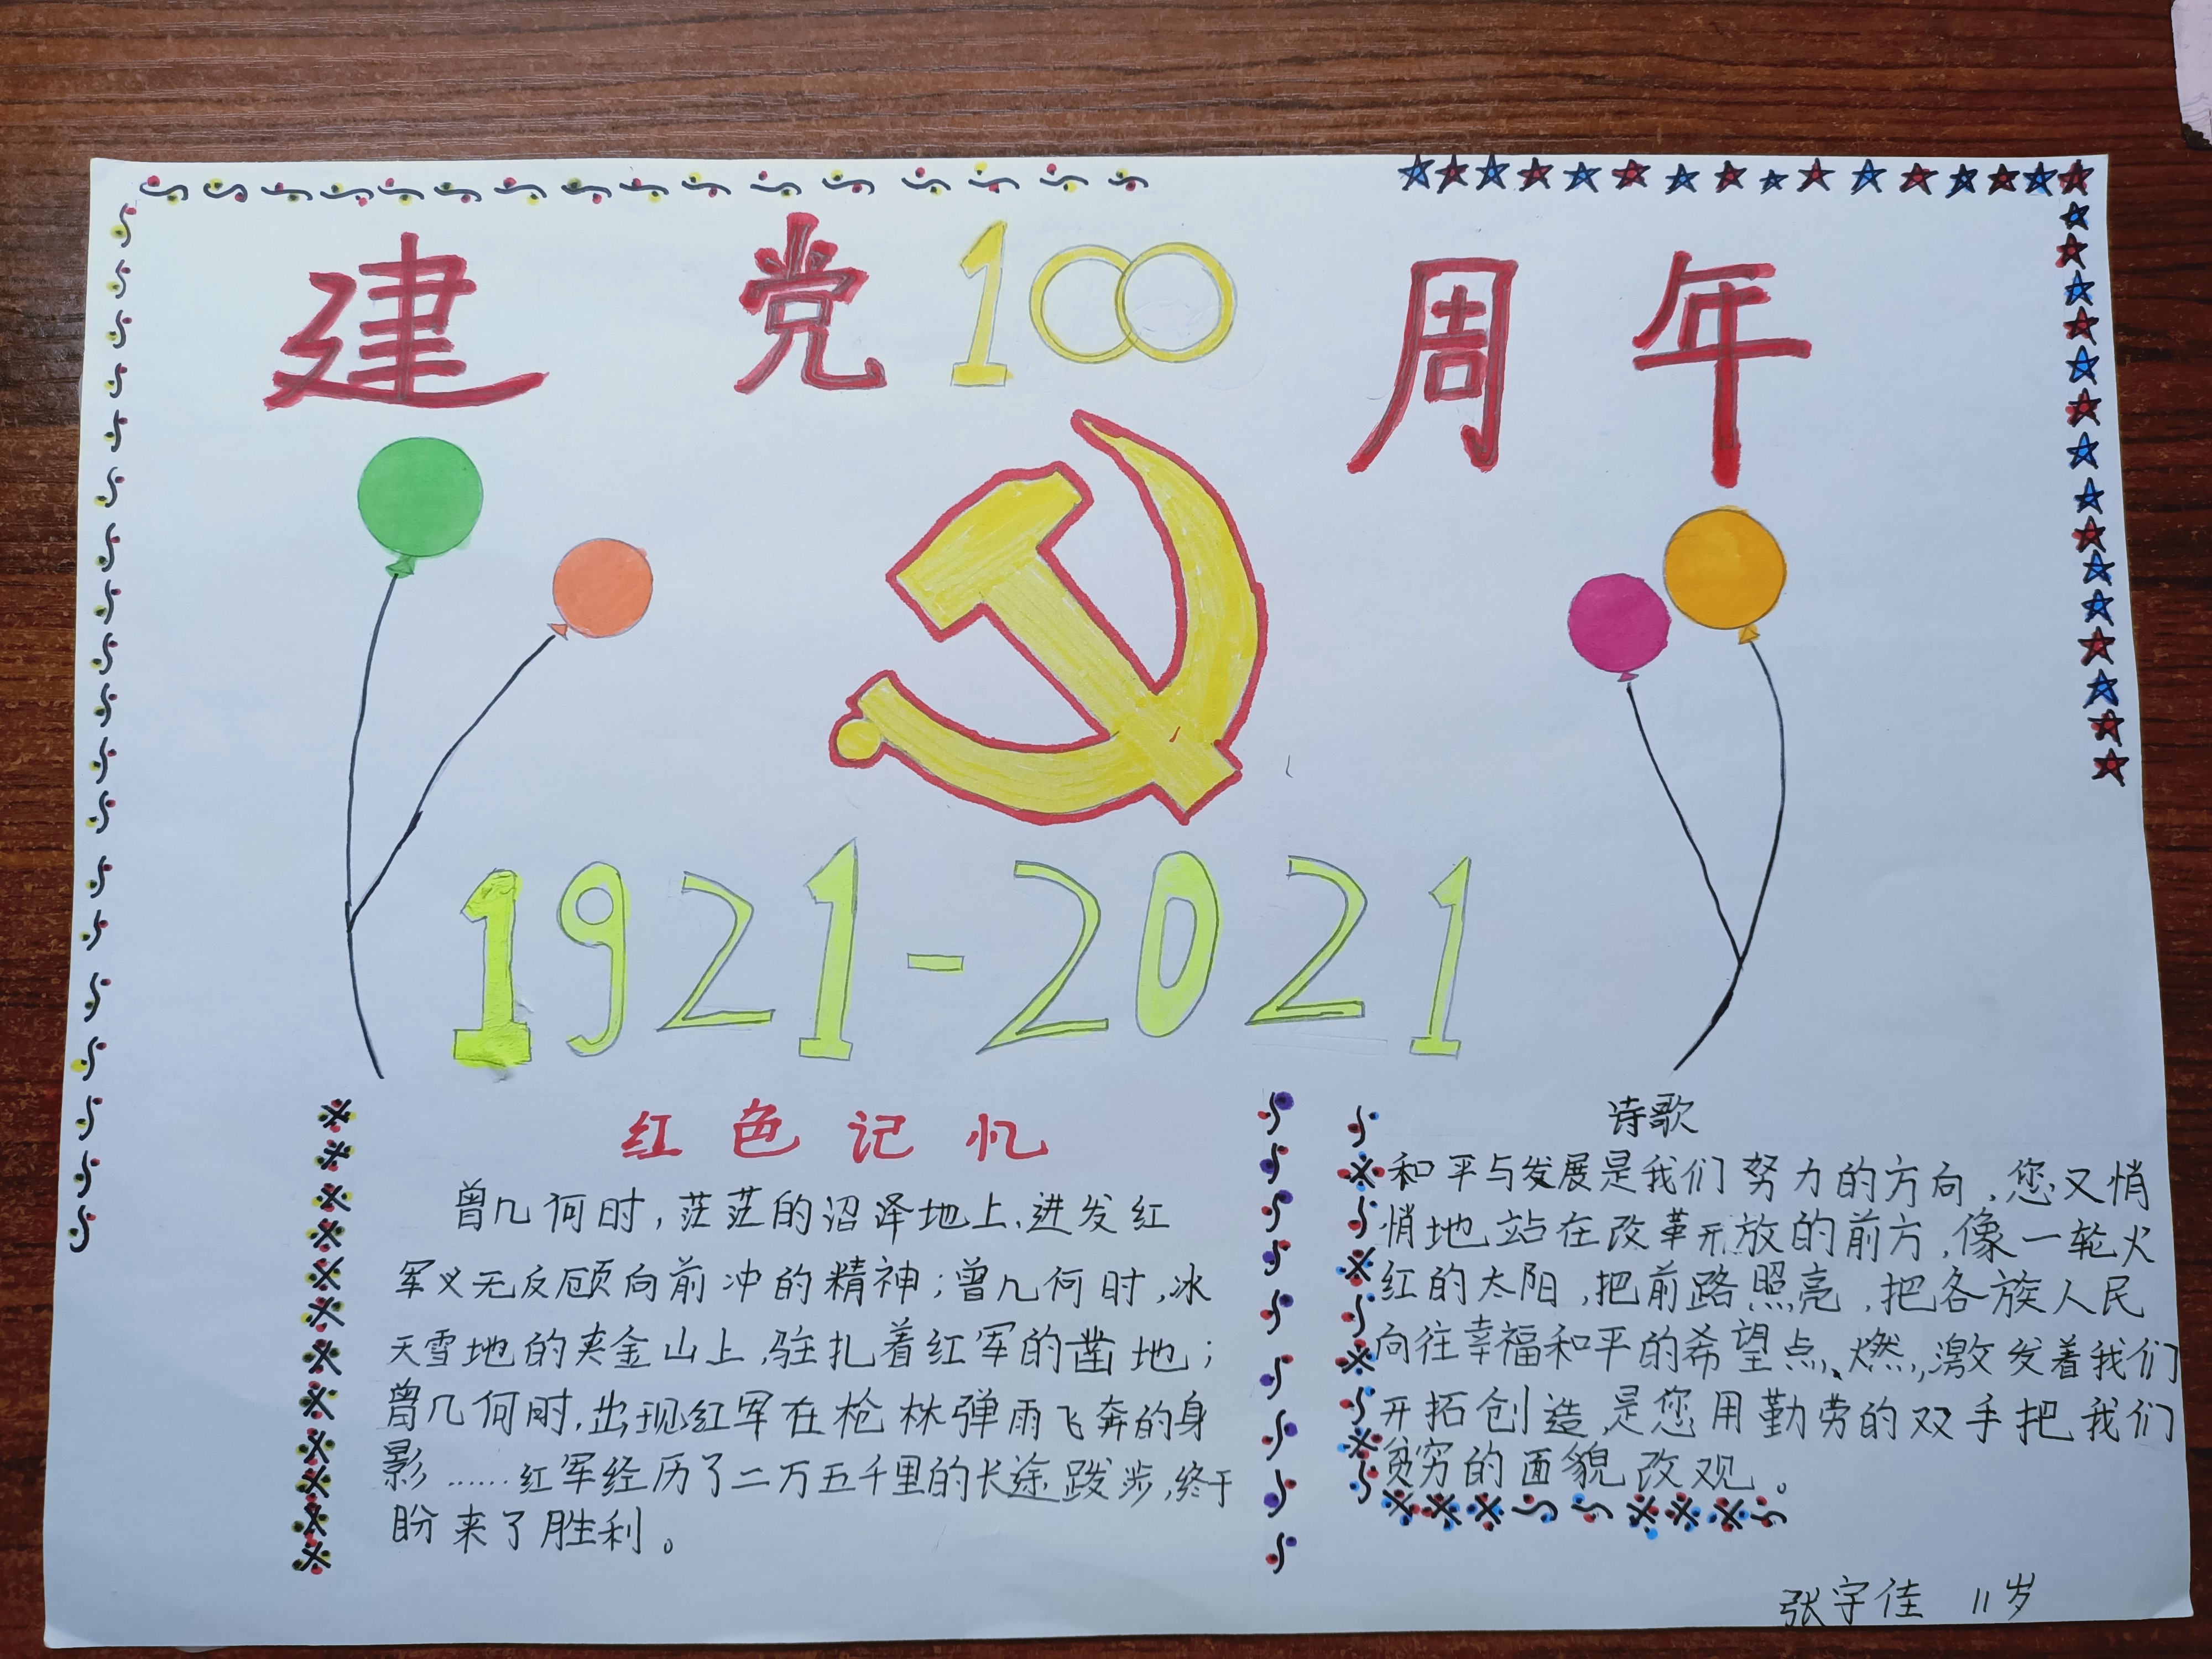 建党100周年
1921-2021
红色记忆
曾几何时,茫茫的沼泽地上,迸发红
军义无反顾向前冲的精神;曾几何时,冰
天雪地的夹金山上,驻扎着红军的凿地;
曾几何时,出现红军在枪林弹雨飞奔的身
影……红军经历了二万五千里的长途跋涉,终于
盼来了胜利。
诗歌
和平与发展是我们努力的方向,您又悄
悄地站在改革开放的前方,像一轮火
红的太阳,把前路照亮,把各族人民
向往幸福和平的希望点燃,激发着我们
开拓创造,是您用勤劳的双手把我们
贫穷的面貌改观。
张宇佳 11岁